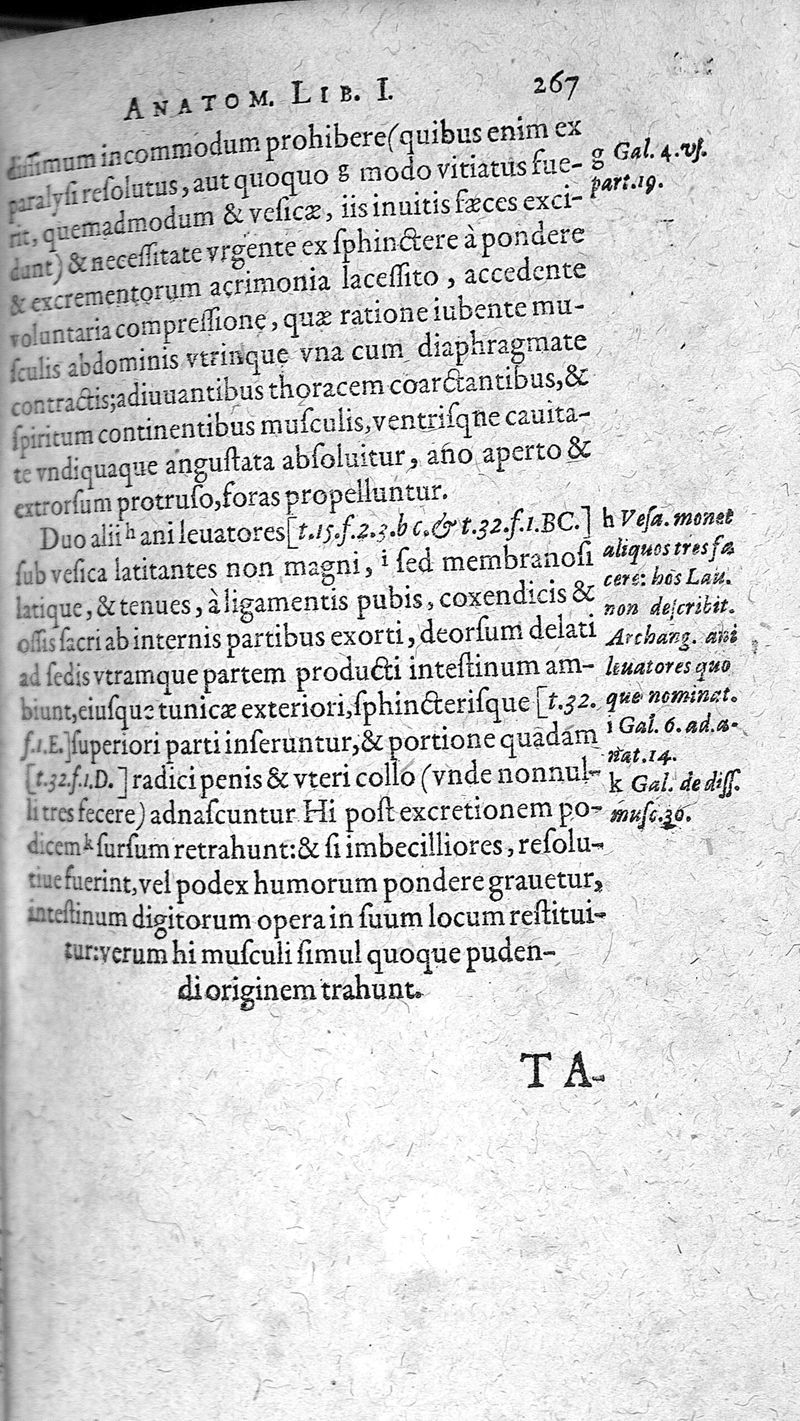 ANATOM. LIB. I. 267
diſſimum incommodum prohibere (quibus enim ex
paralyſi reſolutus, aut quoquo g modo vitiatus fue-
rit, quemadmodum & veſicæ, iis inuitis fæces exci-
dunt) & neceſſitate vrgente ex ſphinctere à pondere
& excrementorum acrimonia laceſſito, accedente
voluntaria compreſſione, quæ ratione iubente mu-
ſculis abdominis vtrinque vna cum diaphragmate
contractis; adiuuantibus thoracem coarctantibus, &
ſpiritum continentibus muſculis, ventriſqne cauita-
te vndiquaque anguſtata abſoluitur, ano aperto &
extrorſum protruſo, foras propelluntur.
Duo alii h ani leuatores [t.15.f.2.3.b c.& t.32.f.1.BC.]
ſub veſica latitantes non magni, i ſed membranoſi
latique, & tenues, à ligamentis pubis, coxendicis &
oſſis ſacri ab internis partibus exorti, deorſum delati
ad ſedis vtramque partem producti inteſtinum am-
biunt, eiuſque tunicæ exteriori, ſphincteriſque [t.32.
f.1.E.] ſuperiori parti inferuntur, & portione quadam
[t.32.f.1.D.] radici penis & vteri collo (vnde nonnul-
li tres fecere) adnaſcuntur. Hi poſt excretionem po-
dicem k ſurſum retrahunt: & ſi imbecilliores, reſolu-
tiue fuerint, vel podex humorum pondere grauetur,
inteſtinum digitorum opera in ſuum locum reſtitui-
tur: verum hi muſculi ſimul quoque puden-
di originem trahunt.
TA-
g Gal. 4. vſ.
part. 19.
h Veſa. monet
aliquos tres fa
cere: hos Lau.
non deſcribit.
Archang. ani
leuatores quo
que nominat.
i Gal. 6. ad. a-
nat. 14.
k Gal. de diſſ.
muſc. 30.